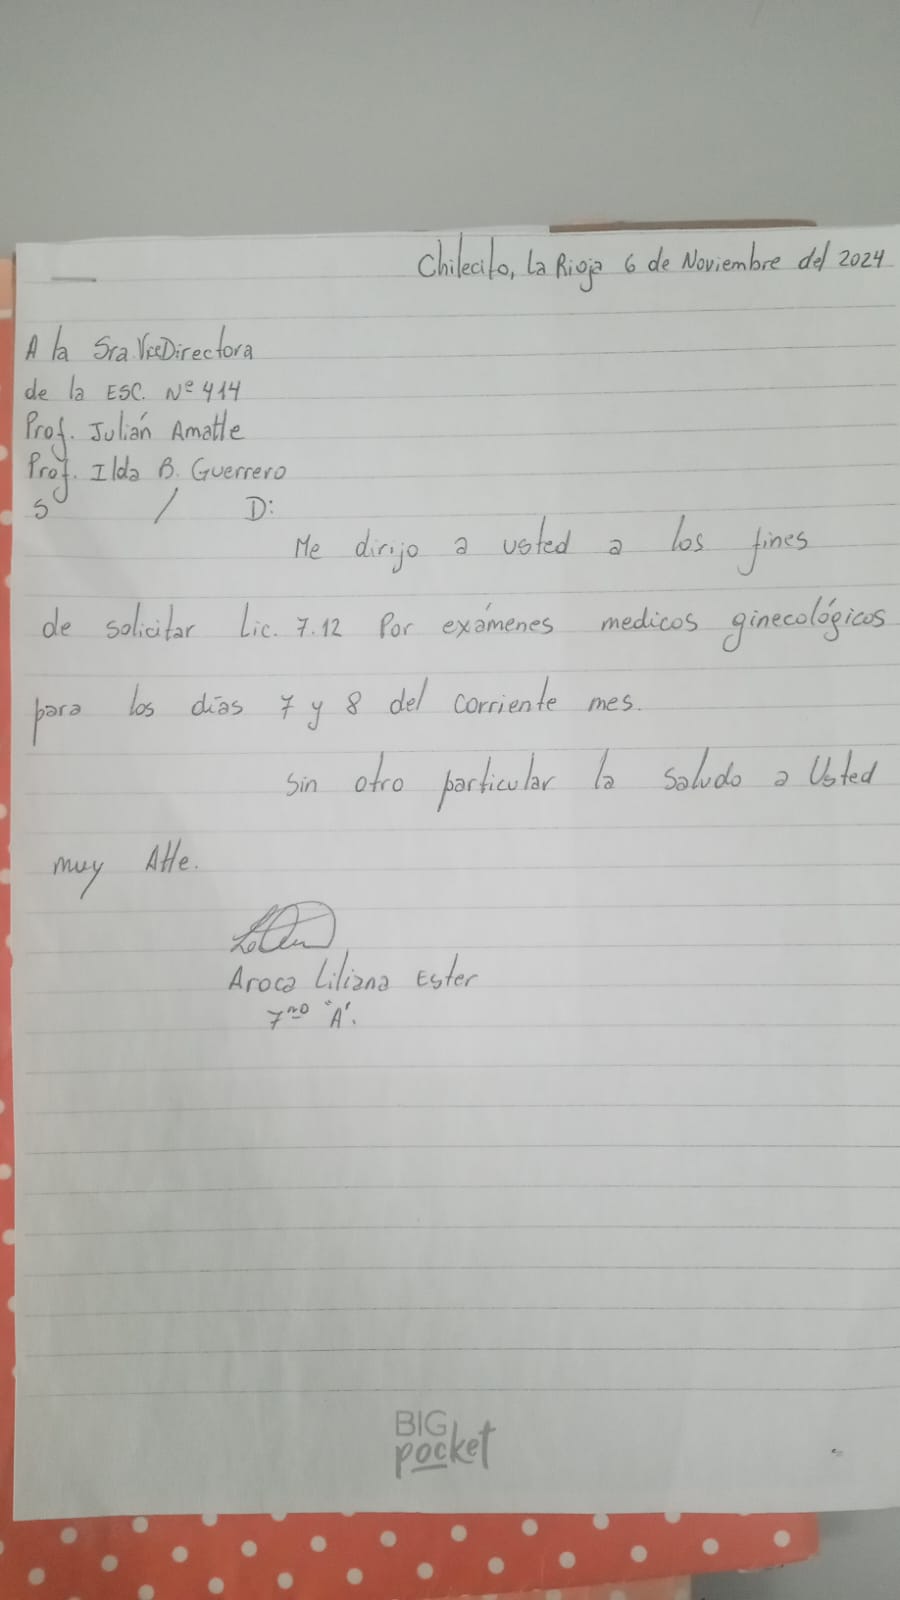 Chilecito, La Rioja 6 de Noviembre del 2024
A la Sra. ViceDirectora
de la ESC. Nº 414
Prof. Julián Amatle
Prof. Ilda B. Guerrero
S / D:
Me dirijo a usted a los fines
de solicitar Lic. 7.12 Por exámenes medicos ginecológicos
para los días 7 y 8 del corriente mes.
Sin otro particular la saludo a Usted
muy Atte.
Aroca Liliana Ester
7mo "A".
BIG
pocket